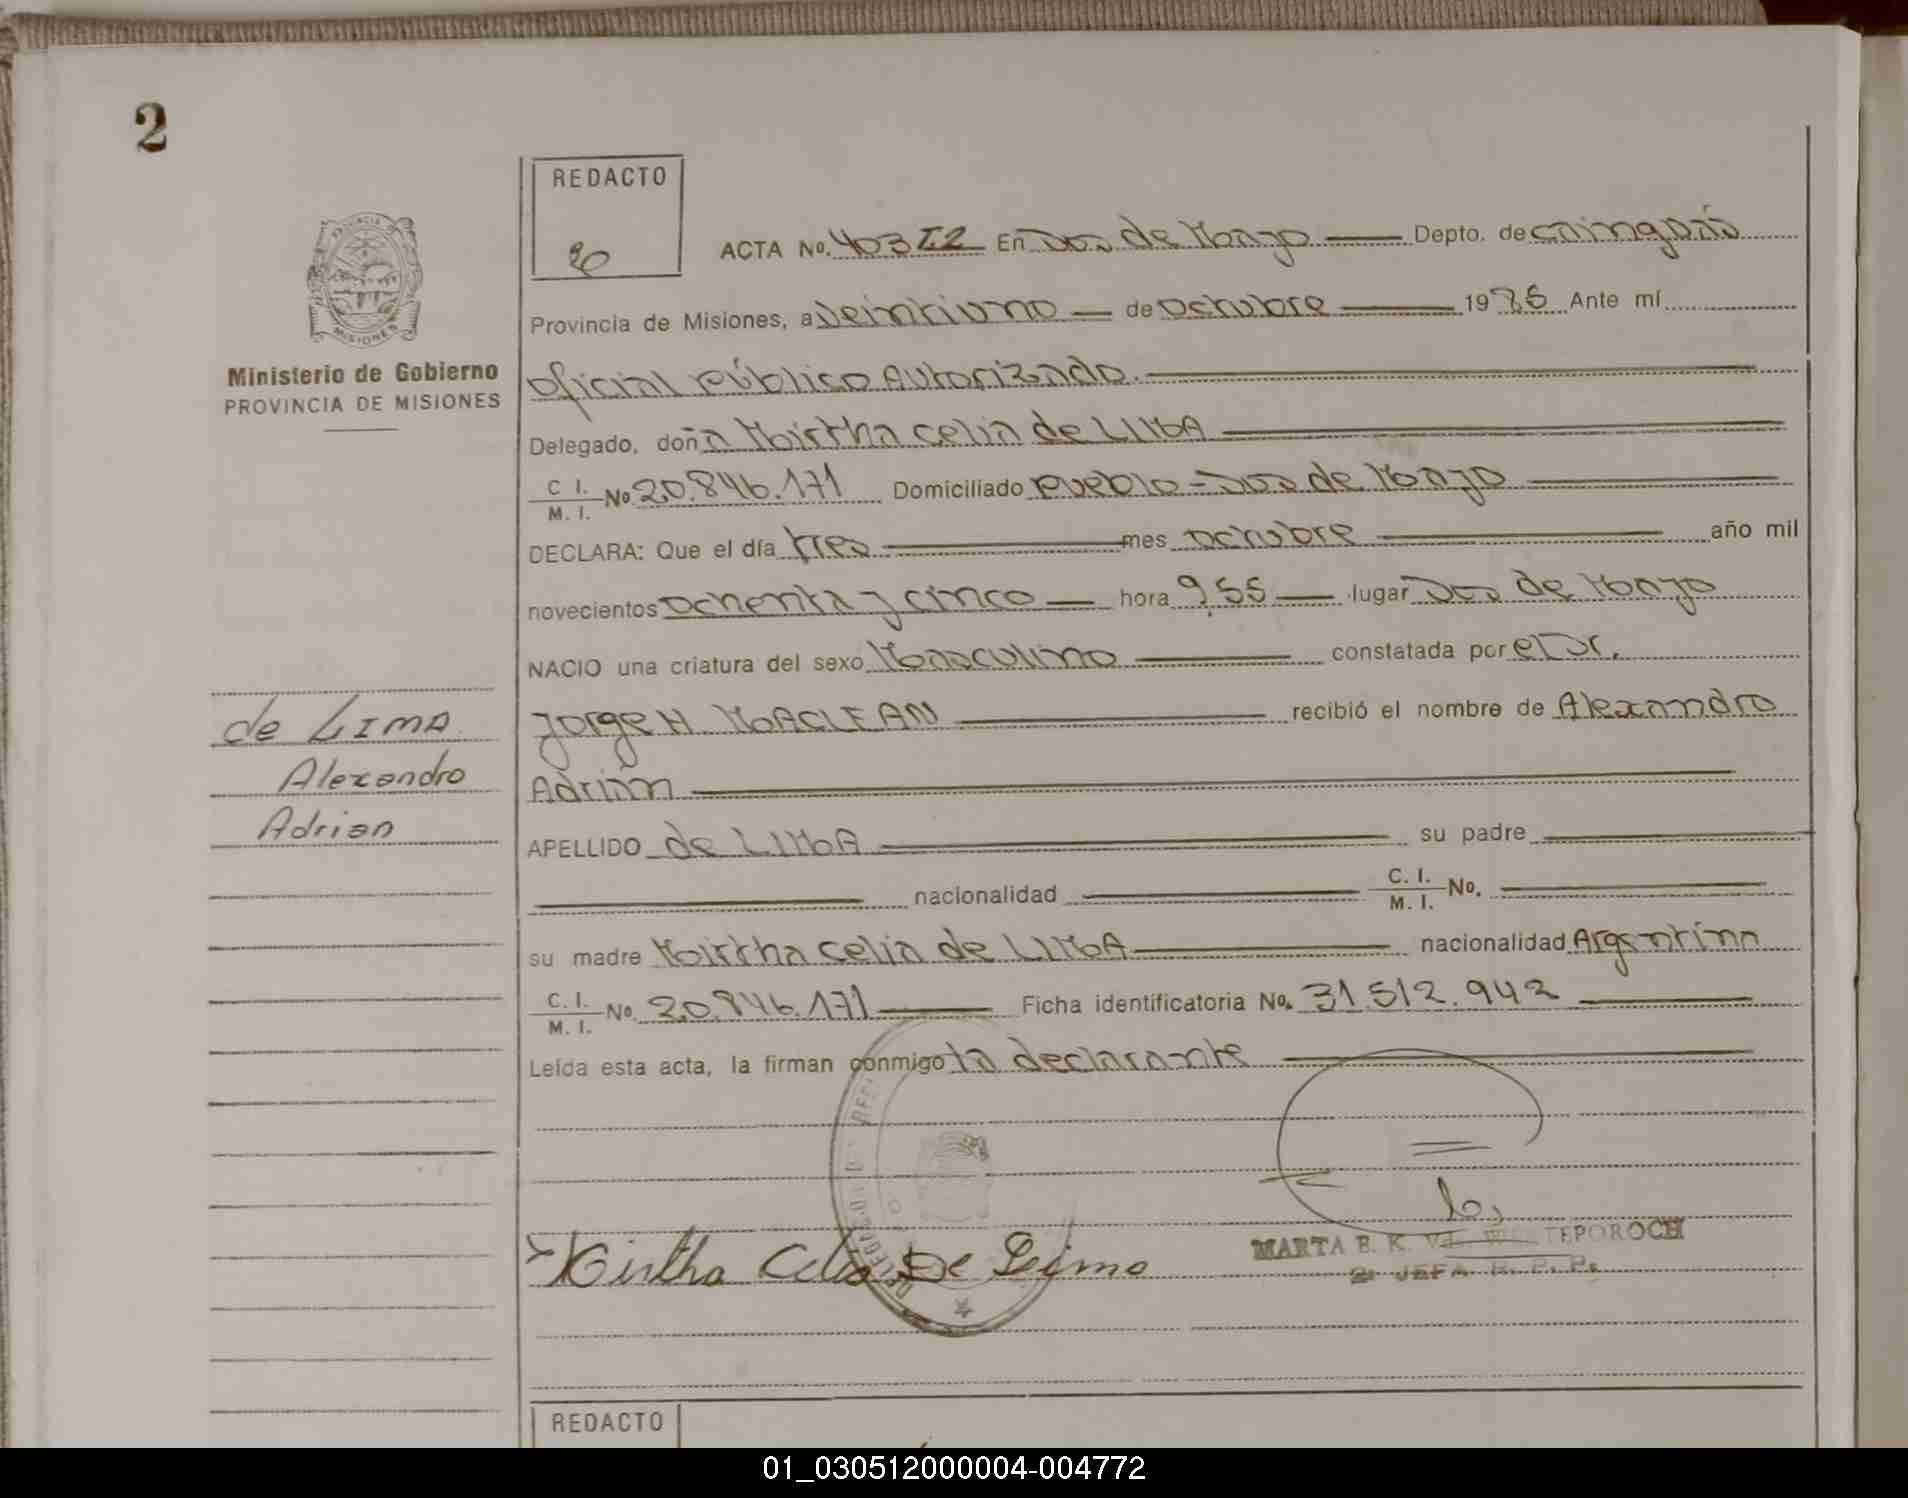 2
REDACTO
ACTA No. 403 T.2 En Dos de Mayo Depto. de Caingúas
Provincia de Misiones, a Veintiuno de Octubre 1985 Ante mí
PROVINCIA
MISIONES
Ministerio de Gobierno
PROVINCIA DE MISIONES
Oficial Público Autorizado.
Delegado, doña Mirtha Celia de LIMA
C. I.
M. I. No. 20.846.171 Domiciliado Pueblo - Dos de Mayo
DECLARA: Que el día tres mes octubre año mil
novecientos ochenta y cinco hora 9,55 lugar Dos de Mayo
NACIO una criatura del sexo Masculino constatada por el Dr.
Jorge H. MACLEAN recibió el nombre de Alexandro
Adrián
de LIMA
Alexandro
Adrian
APELLIDO de LIMA su padre
nacionalidad C. I.
M. I. No.
su madre Mirtha Celia de LIMA nacionalidad Argentina
C. I.
M. I. No. 20.846.171 Ficha identificatoria No. 31.512.942
Leída esta acta, la firman conmigo la declarante
Mirtha Celia De Leima
MARTA E. K. TEPOROCH
2° JEFA R. P. P.
REDACTO
01_030512000004-004772